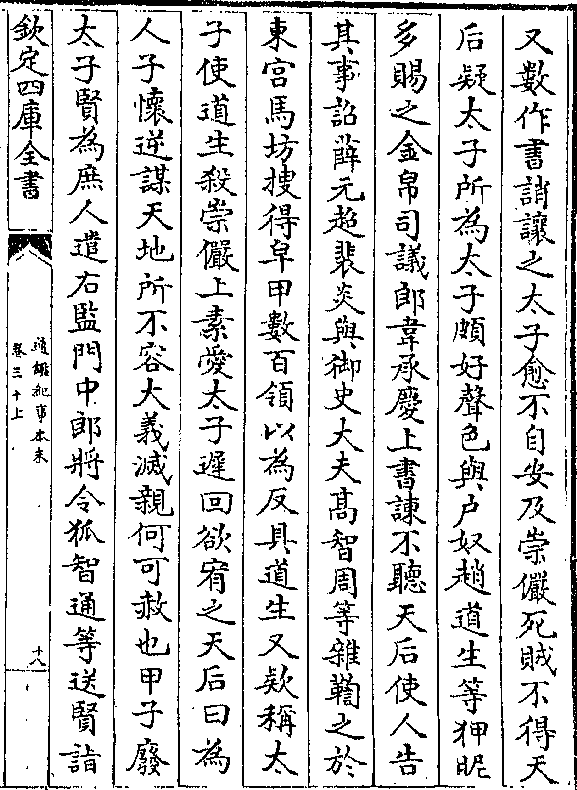 又數作書誚讓之太子愈不自安及崇儼死賊不得天
后疑太子所為太子頗好聲色與户奴趙道生等狎昵
多賜之金帛司議郎韋承慶上書諫不聽天后使人告
其事詔薛元超裴炎與御史大夫髙智周等雜鞫之於
東宫馬坊搜得皁甲數百領以為反具道生又款稱太
子使道生殺崇儼上素愛太子遲回欲宥之天后曰為
人子懷逆謀天地所不容大義滅親何可赦也甲子廢
太子賢為庶人遣右監門中郎將令狐智通等送賢詣
欽定四庫全書
通鑑紀事本末
卷三十上
十八